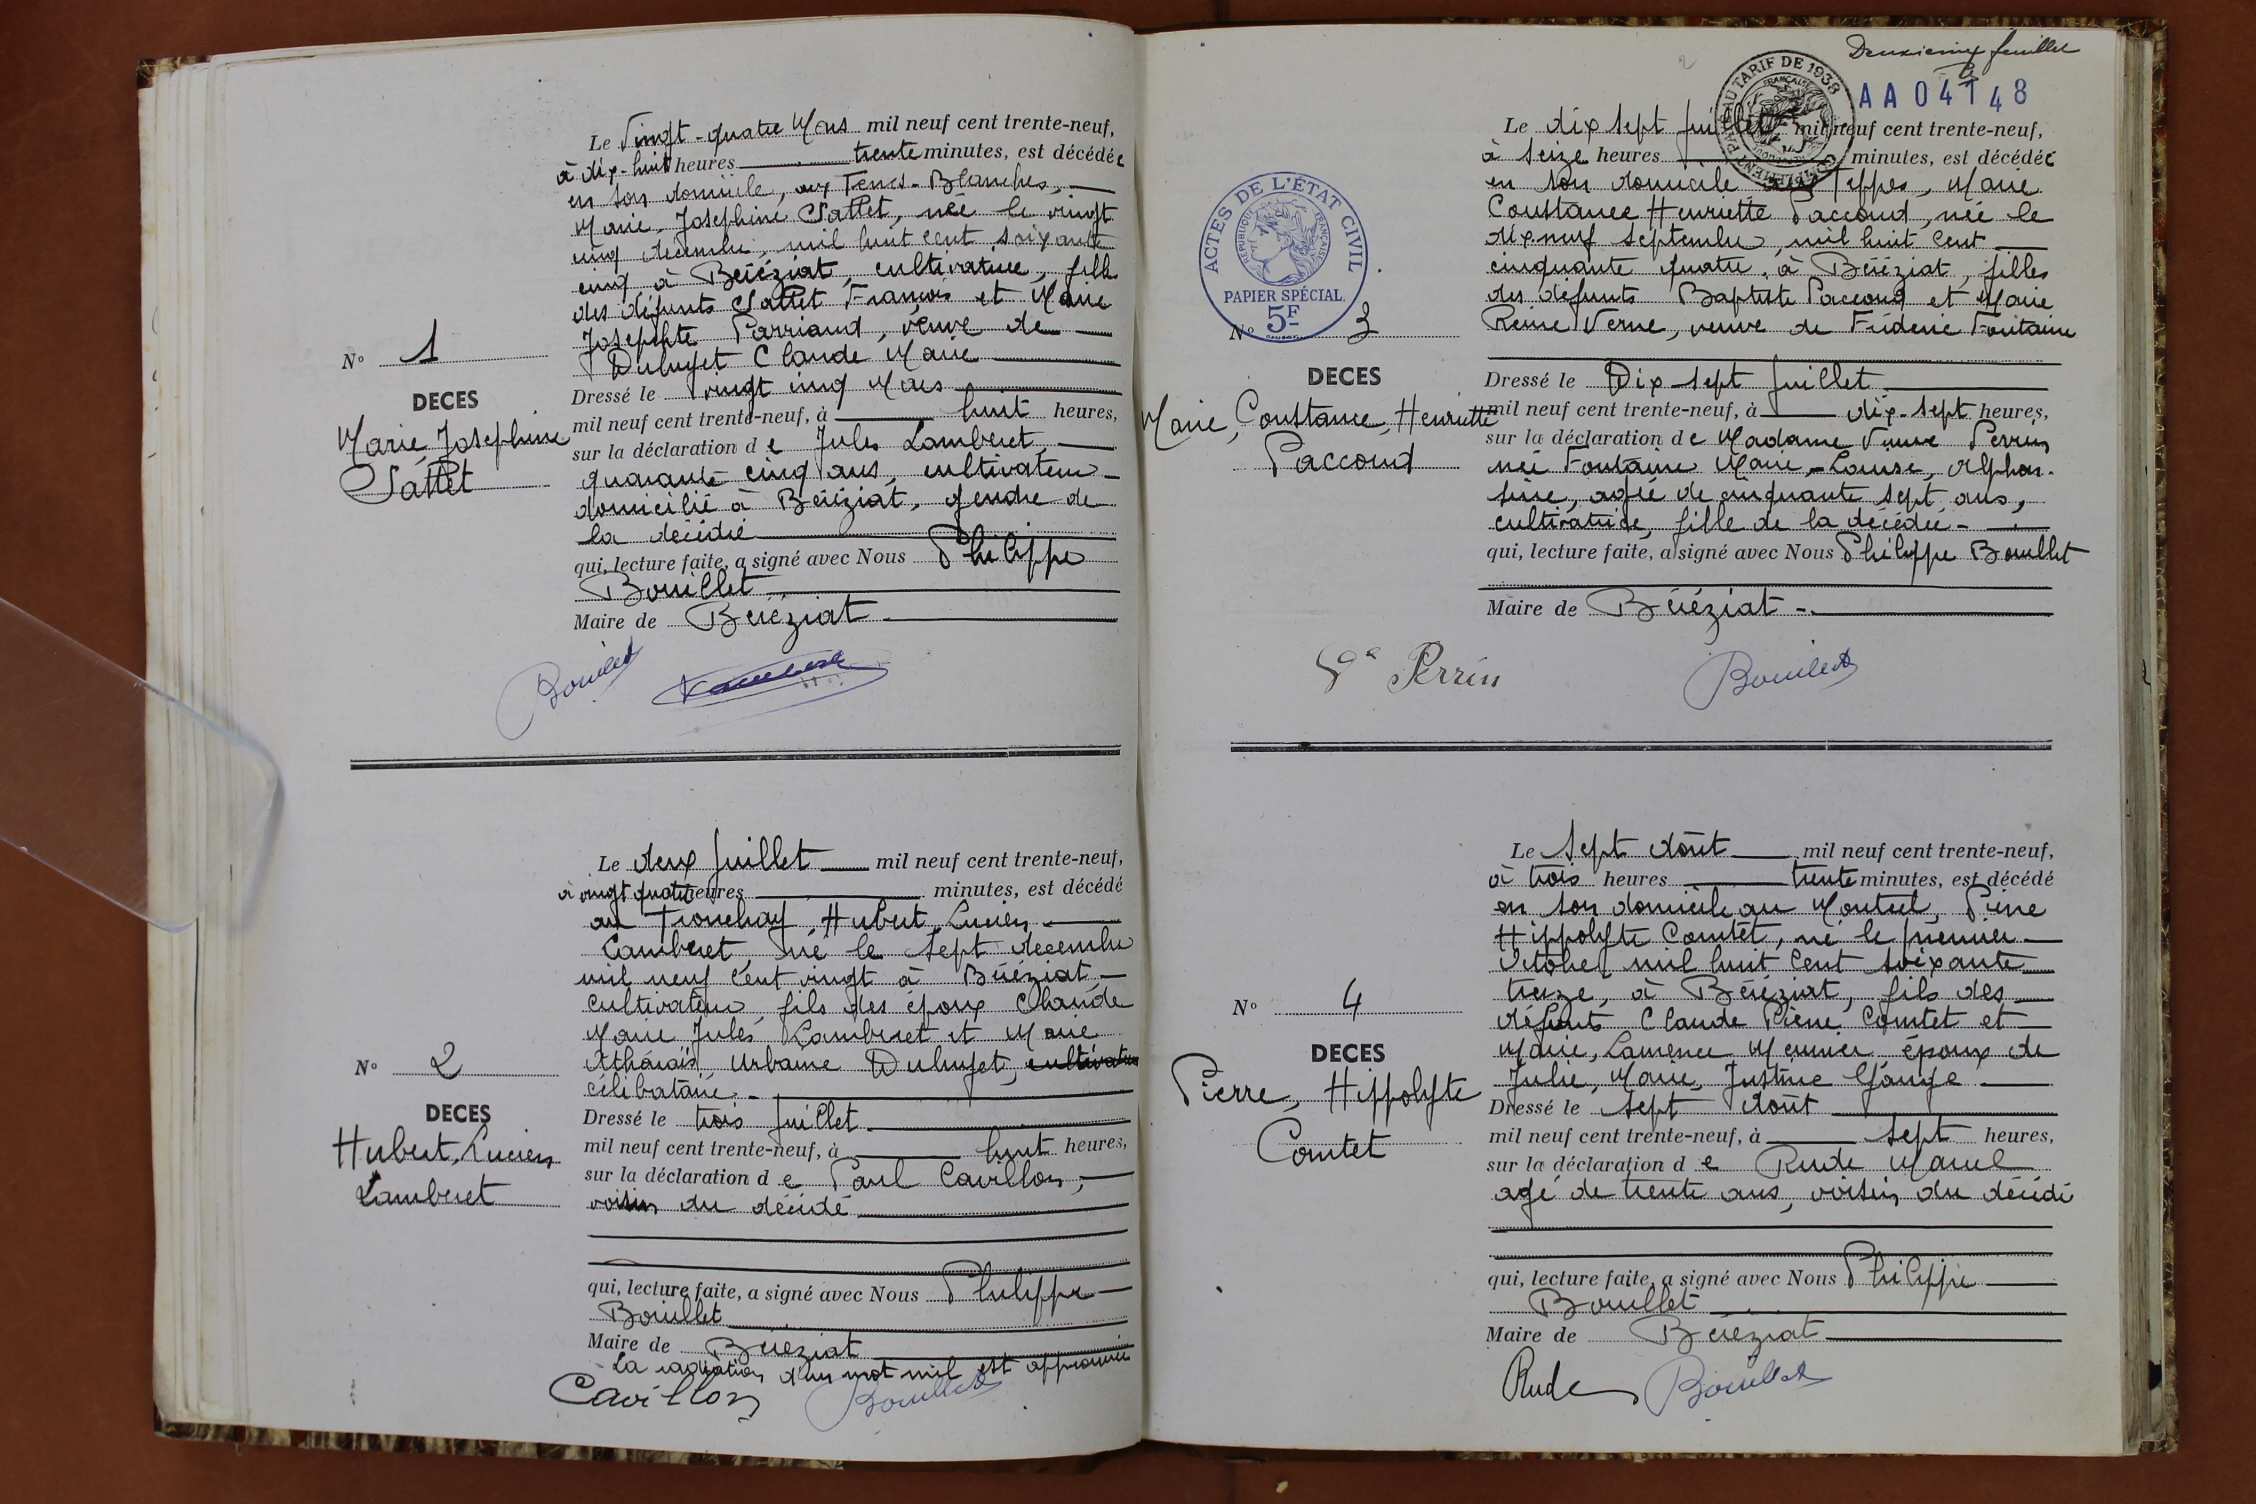 Le Vingt-quatre Mars mil neuf cent trente-neuf,
à dix-huit heures trente minutes, est décédée
en son domicile, aux Terres-Blanches,
Marie, Josephine Cattet, née le vingt
cinq decembre, mil huit cent soixante
cinq à Béréziat, cultivatrice, fille
des défunts Cattet François et Marie
Josephte Parriaud, veuve de
Dubuyet Claude Marie
Dressé le vingt cinq Mars
mil neuf cent trente-neuf, à huit heures,
sur la déclaration de Jules Lamberet,
quarante cinq ans, cultivateur
domicilié à Béréziat, gendre de
la décédée
qui, lecture faite, a signé avec Nous Philippe
Bouillet
Maire de Béréziat
N° 1
DECES
Marie, Josephine
Cattet
Bouillet
Le deux Juillet mil neuf cent trente-neuf,
à vingt quatre heures minutes, est décédé
au Tronchay, Hubert, Lucien
Lamberet, né le sept decembre
mil neuf cent vingt à Béréziat
cultivateur, fils des époux Claude
Marie Jules Lamberet et Marie
Athénaïs Urbaine Dubuyet, cultivateur
célibataire.
Dressé le trois Juillet
mil neuf cent trente-neuf, à huit heures,
sur la déclaration de Paul Cavillon,
voisin du décédé
qui, lecture faite, a signé avec Nous Philippe
Bouillet
Maire de Béréziat
La radiation d'un mot nul est approuvée
N° 2
DECES
Hubert, Lucien
Lamberet
Cavillon Bouillet
Deuxième feuillet
AA 04148
AU TARIF DE 1938
ACTES DE L'ÉTAT CIVIL
RÉPUBLIQUE FRANÇAISE
PAPIER SPÉCIAL
5F
Le dix sept Juillet mil neuf cent trente-neuf,
à seize heures minutes, est décédée
en son domicile aux Teppes, Marie
Constance Henriette Paccoud, née le
dix neuf septembre, mil huit cent
cinquante quatre, à Béréziat, filles
des défunts Baptiste Paccoud et Marie
Reine Verne, veuve de Fréderic Fontaine
Dressé le Dix-sept Juillet
mil neuf cent trente-neuf, à dix-sept heures,
sur la déclaration de Madame Veuve Perrin
née Fontaine Marie-Louise, Alphon-
sine, agée de cinquante sept ans,
cultivatrice, fille de la décédée
qui, lecture faite, a signé avec Nous Philippe Bouillet
Maire de Béréziat
N° 3
DECES
Marie, Constance, Henriette
Paccoud
Vve Perrin Bouillet
Le Sept Août mil neuf cent trente-neuf,
à trois heures trente minutes, est décédé
en son domicile au Monteil, Pierre
Hippolyte Comtet, né le premier
Octobre mil huit cent soixante
treize, à Béréziat, fils des
défunts Claude Pierre Comtet et
Marie, Laurence Meunier, époux de
Julie, Marie, Justine Gauge
Dressé le sept Août
mil neuf cent trente-neuf, à sept heures,
sur la déclaration de Rude Marcel
agé de trente ans, voisin du décédé
qui, lecture faite, a signé avec Nous Philippe
Bouillet
Maire de Béréziat
N° 4
DECES
Pierre, Hippolyte
Comtet
Rude Bouillet